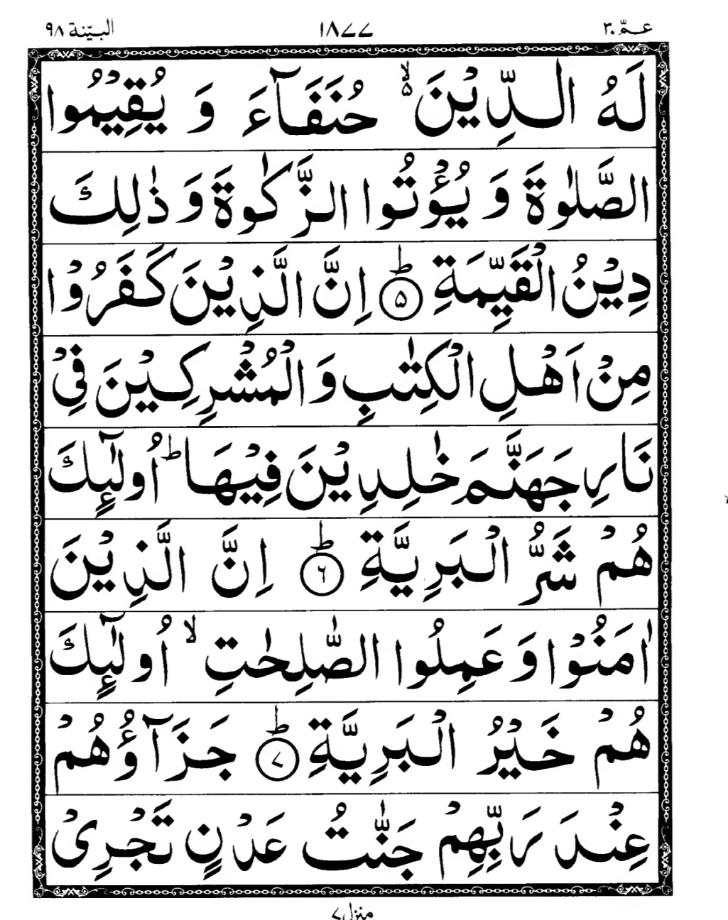 عـمّ ٣٠ ١٨٧٧ البيّنة ٩٨
لَهُ الدِّيْنَ ۙ۬ حُنَفَآءَ وَ يُقِيْمُوا
الصَّلٰوةَ وَ يُؤْتُوا الزَّكٰوةَ وَ ذٰلِكَ
دِيْنُ الْقَيِّمَةِ ؕ﴿۵﴾ اِنَّ الَّذِيْنَ كَفَرُوْا
مِنْ اَهْلِ الْكِتٰبِ وَ الْمُشْرِكِيْنَ فِيْ
نَارِ جَهَنَّمَ خٰلِدِيْنَ فِيْهَا ؕ اُولٰٓئِكَ
هُمْ شَرُّ الْبَرِيَّةِ ؕ﴿۶﴾ اِنَّ الَّذِيْنَ
اٰمَنُوْا وَ عَمِلُوا الصّٰلِحٰتِ ۙ اُولٰٓئِكَ
هُمْ خَيْرُ الْبَرِيَّةِ ؕ﴿۷﴾ جَزَآؤُهُمْ
عِنْدَ رَبِّهِمْ جَنّٰتُ عَدْنٍ تَجْرِيْ
منزل ٧